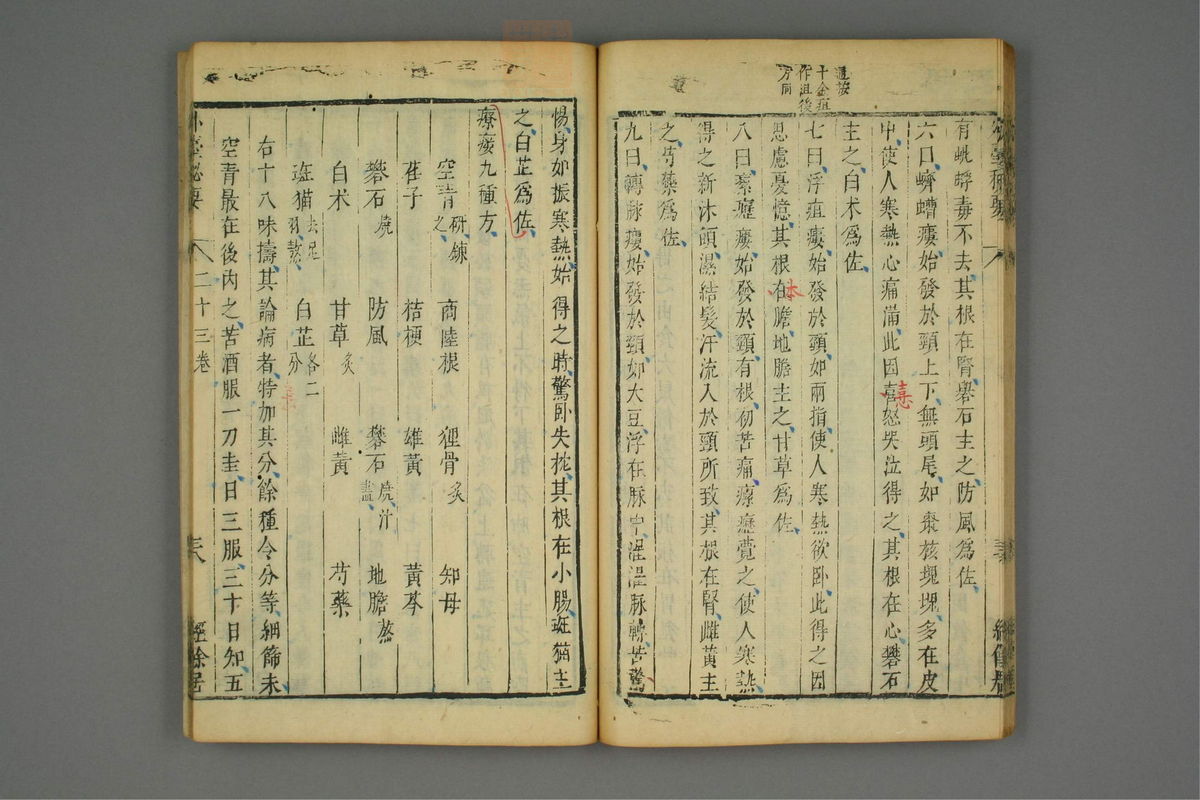 通按
千金疽
作沮後
方同
有蚍蜉毒不去其根在腎礜石主之防風爲佐
六曰蠐螬瘻始發於頸上下無頭尾如棗核塊塊多在皮
中使人寒熱心痛滿此因喜怒哭泣得之其根在心礬石
喜恚
主之白术爲佐
七曰浮疽瘻始發於頸如兩指使人寒熱欲卧此得之因
思慮憂憶其根在膽地膽主之甘草爲佐
本
八曰瘰癧瘻始發於頸有根初苦痛瘰癧覺之使人寒熱
得之新沐頭濕結髮汗流入於頸所致其根在腎雌黃主
之芍藥爲佐
九曰轉脉瘻始發於頸如大豆浮在脉中濯濯脉轉苦驚
惕身如振寒熱始得之時驚卧失枕其根在小腸斑猫主
之白芷爲佐
療瘻九種方
空青研鍊之 商陸根 狸骨炙 知母
荏子 桔梗 雄黃 黃芩
礜石燒 防風 礬石燒汁盡 地膽熬
白术 甘草炙 雌黃 芍藥
斑猫去足羽熬 白芷各二分
右十八味擣其論病者特加其分餘種令分等細篩末
空青最在後内之苦酒服一刀圭日三服三十日知五
外臺秘要 二十三卷 三六 經餘居